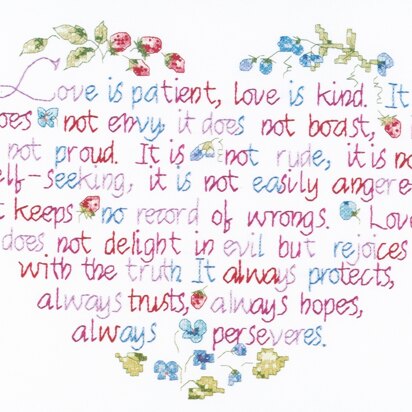 Love is patient, love is kind. It
oes not envy, it does not boast,
not proud. It is not rude, it is no
elf-seeking, it is not easily angere
t keeps no record of wrongs. Love
does not delight in evil but rejoices
with the truth It always protects,
always trusts, always hopes,
always perseveres.